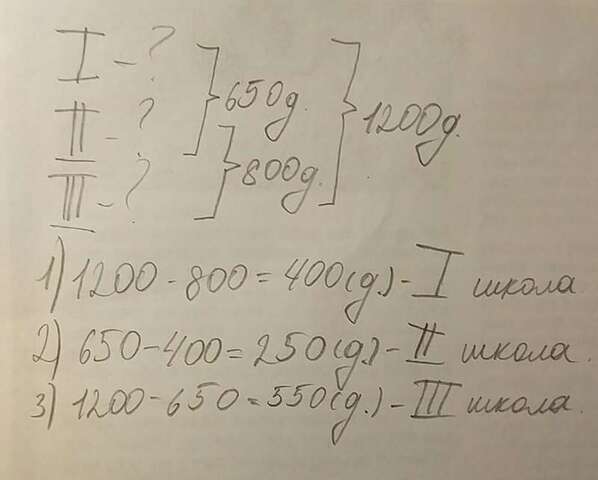 I - ?
650д.
1200д.
II - ?
800д.
III - ?
1) 1200 - 800 = 400(д.) - I школа
2) 650 - 400 = 250(д.) - II школа.
3) 1200 - 650 = 550(д.) - III школа.